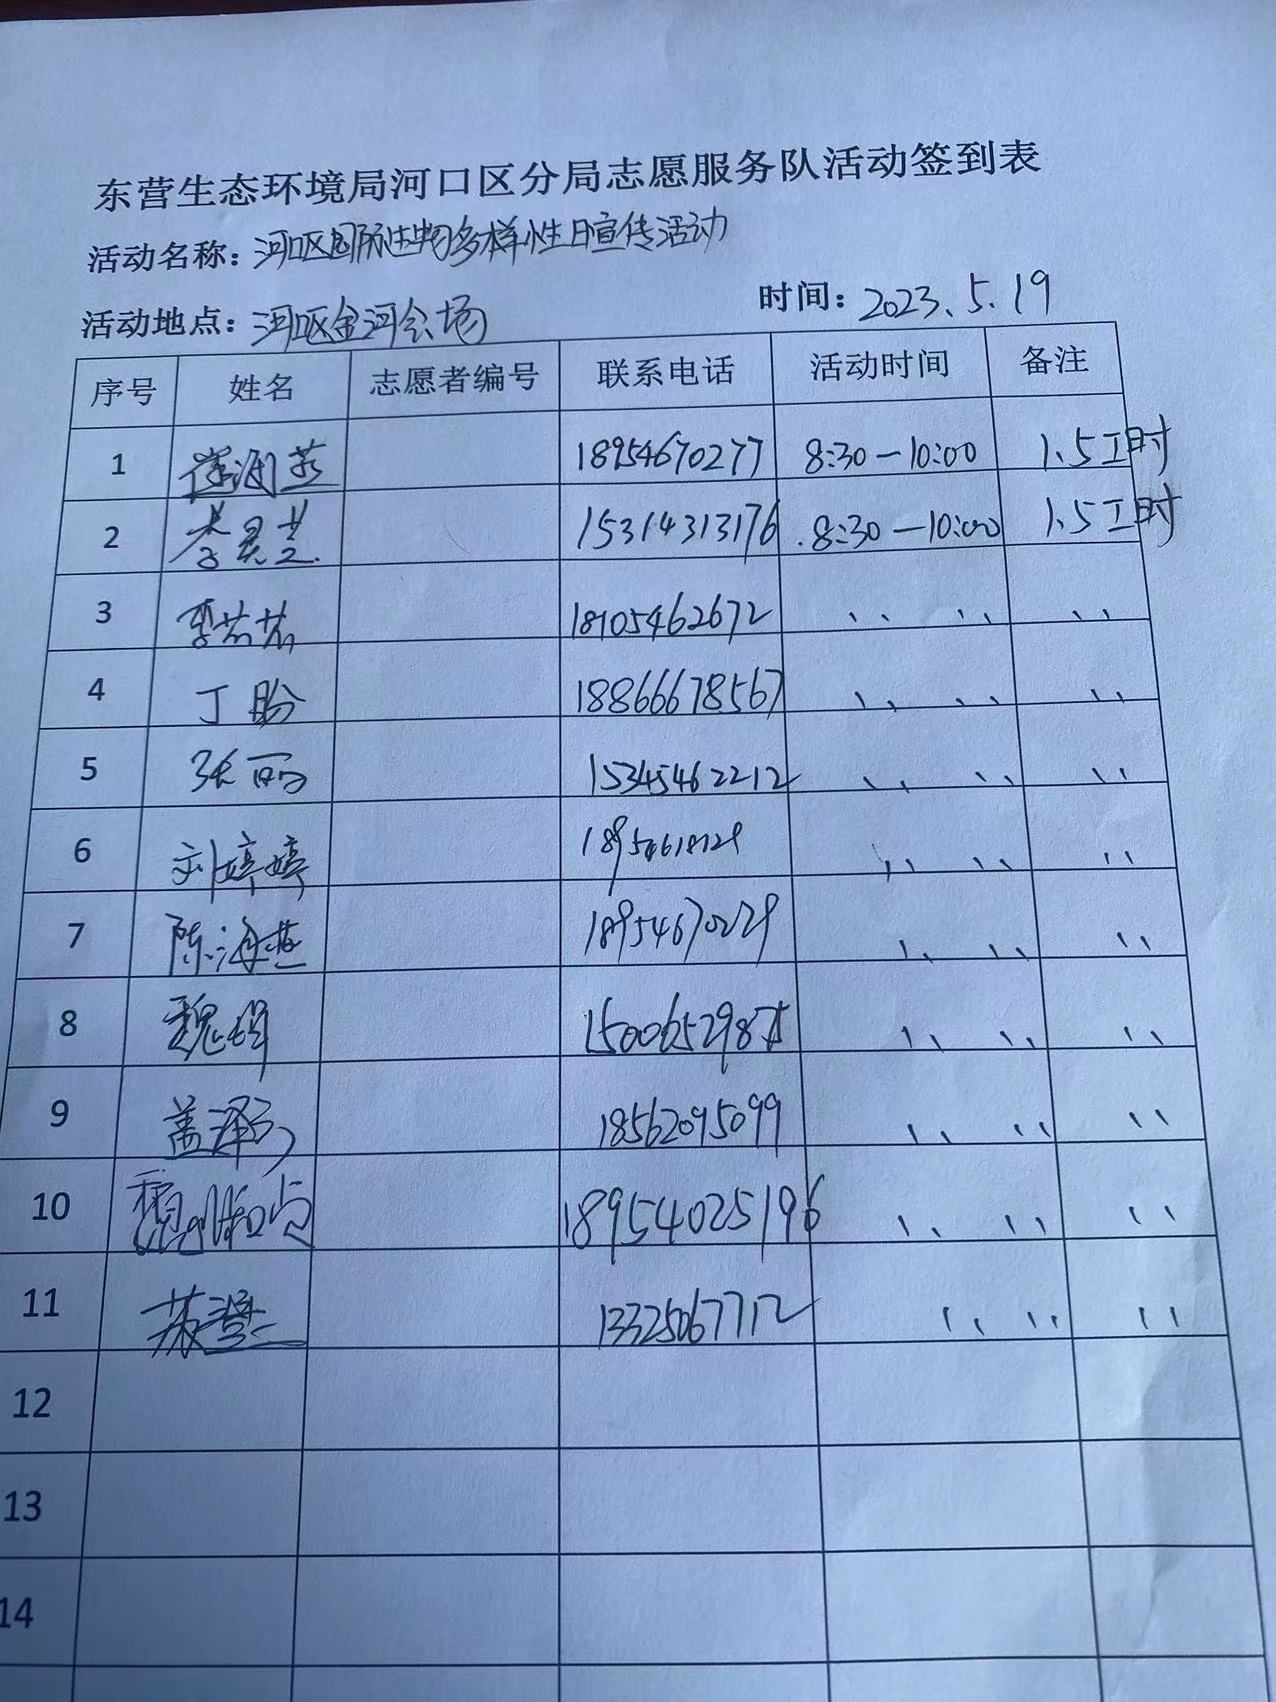 东营生态环境局河口区分局志愿服务队活动签到表
活动名称：河口区国际生物多样性日宣传活动
活动地点：河口区金河会场 时间：2023.5.19
序号 姓名 志愿者编号 联系电话 活动时间 备注
1 18954670277 8:30—10:00 1.5工时
2 李灵芝 15314313176 8:30—10:00 1.5工时
3 李芳芳 18105462672 、、 、、 、、
4 丁盼 18866678567 、、 、、 、、
5 张丽 15345462212 、、 、、 、、
6 刘婷婷 、、 、、 、、
7 陈海燕 18954670229 、、 、、 、、
8 魏 、、 、、 、、
9 盖泽 18562095099 、、 、、 、、
10 18954025196 、、 、、 、、
11 苏 13325067712 、、 、、 、、
12
13
14